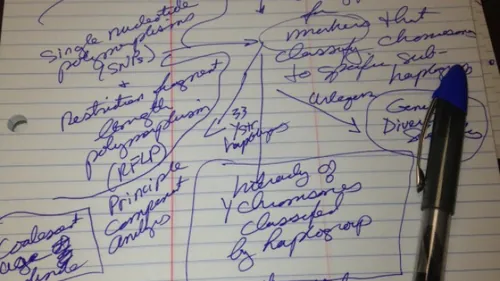 Single nucleotide
polymorphisms
(SNPs)
+
Restriction fragment
length
polymorphism
(RFLP)
Principle
Component
analysis
Coalescent
age of
for
markers that
classify chromosomes
to specific sub-
haplogroups
33
Y-STR
haplotypes
Gene
Diver
Y chromosomes
classified
by haplogroup